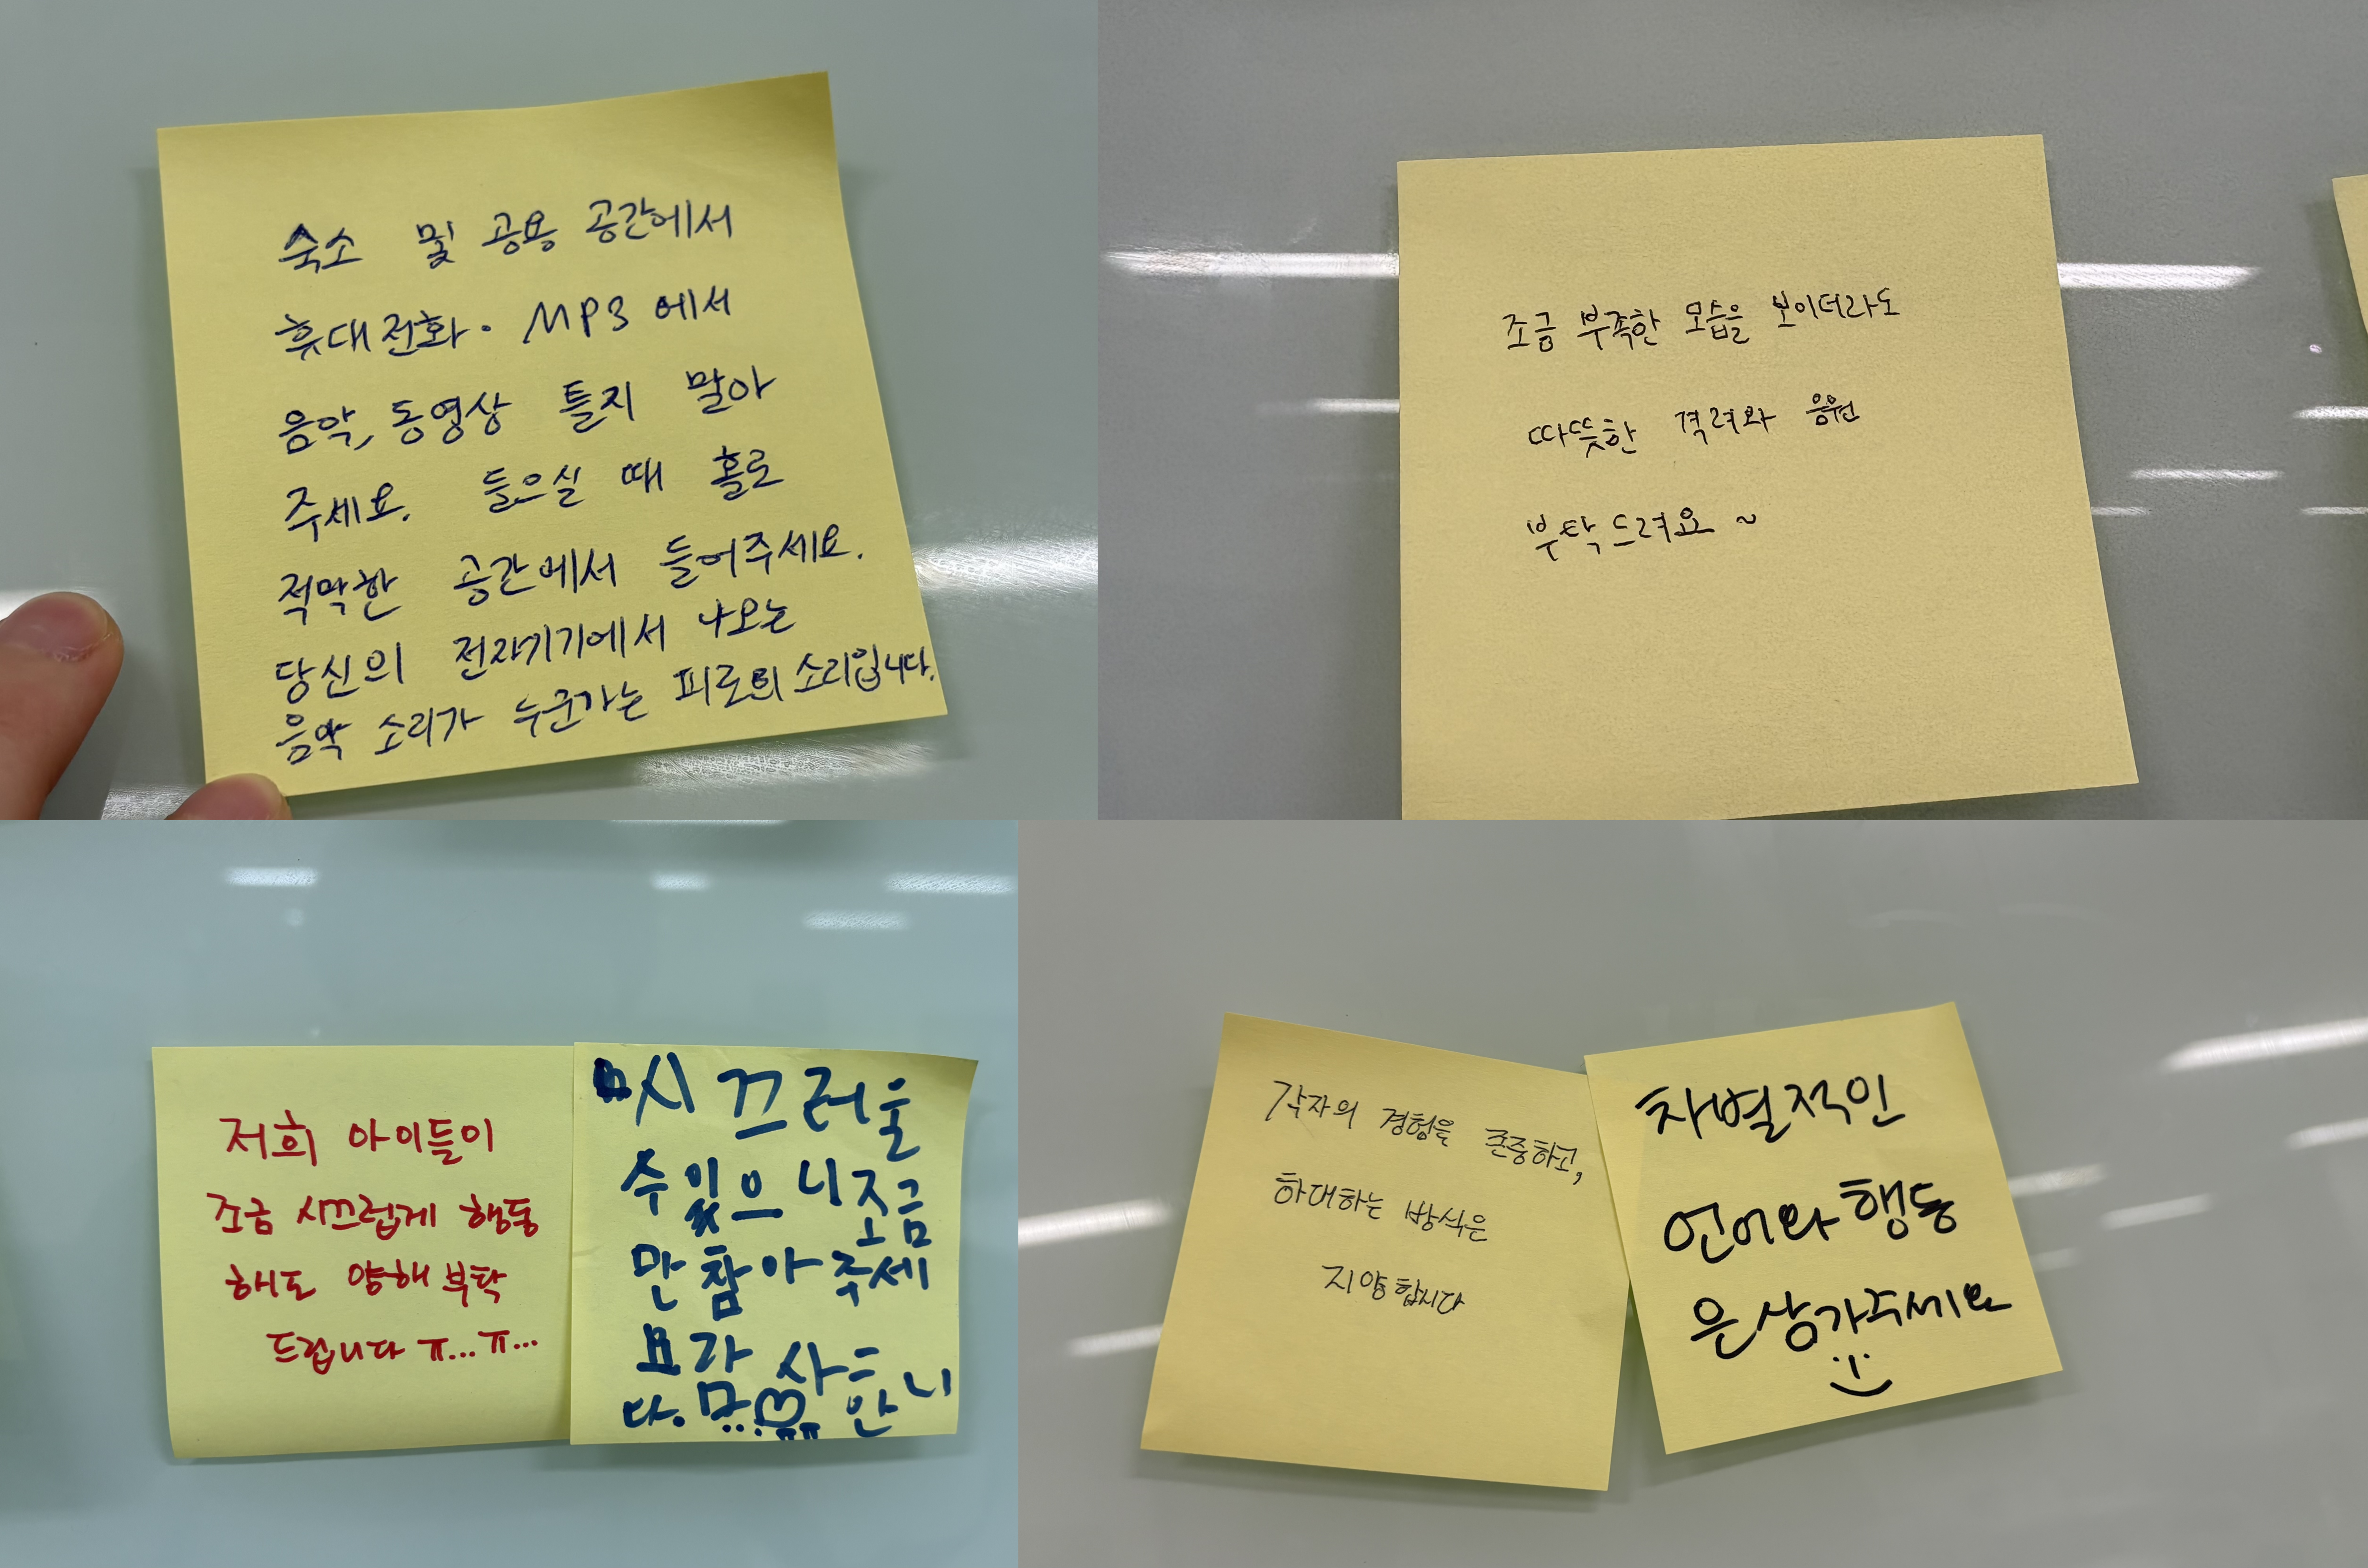 숙소 및 공용 공간에서
휴대전화·MP3에서
음악, 동영상 틀지 말아
주세요. 들으실 때 홀로
적막한 공간에서 들어주세요.
당신의 전자기기에서 나오는
음악 소리가 누군가는 피로의 소리입니다.
조금 부족한 모습을 보이더라도
따뜻한 격려와 응원
부탁드려요~
저희 아이들이
조금 시끄럽게 행동
해도 양해 부탁
드립니다 ㅠ...ㅠ...
시끄러울
수 있으니 조금
만 참아 주세
요 감사
다.
각자의 경험을 존중하고,
하대하는 방식은
지양합시다
차별적인
언어와 행동
은 삼가주세요